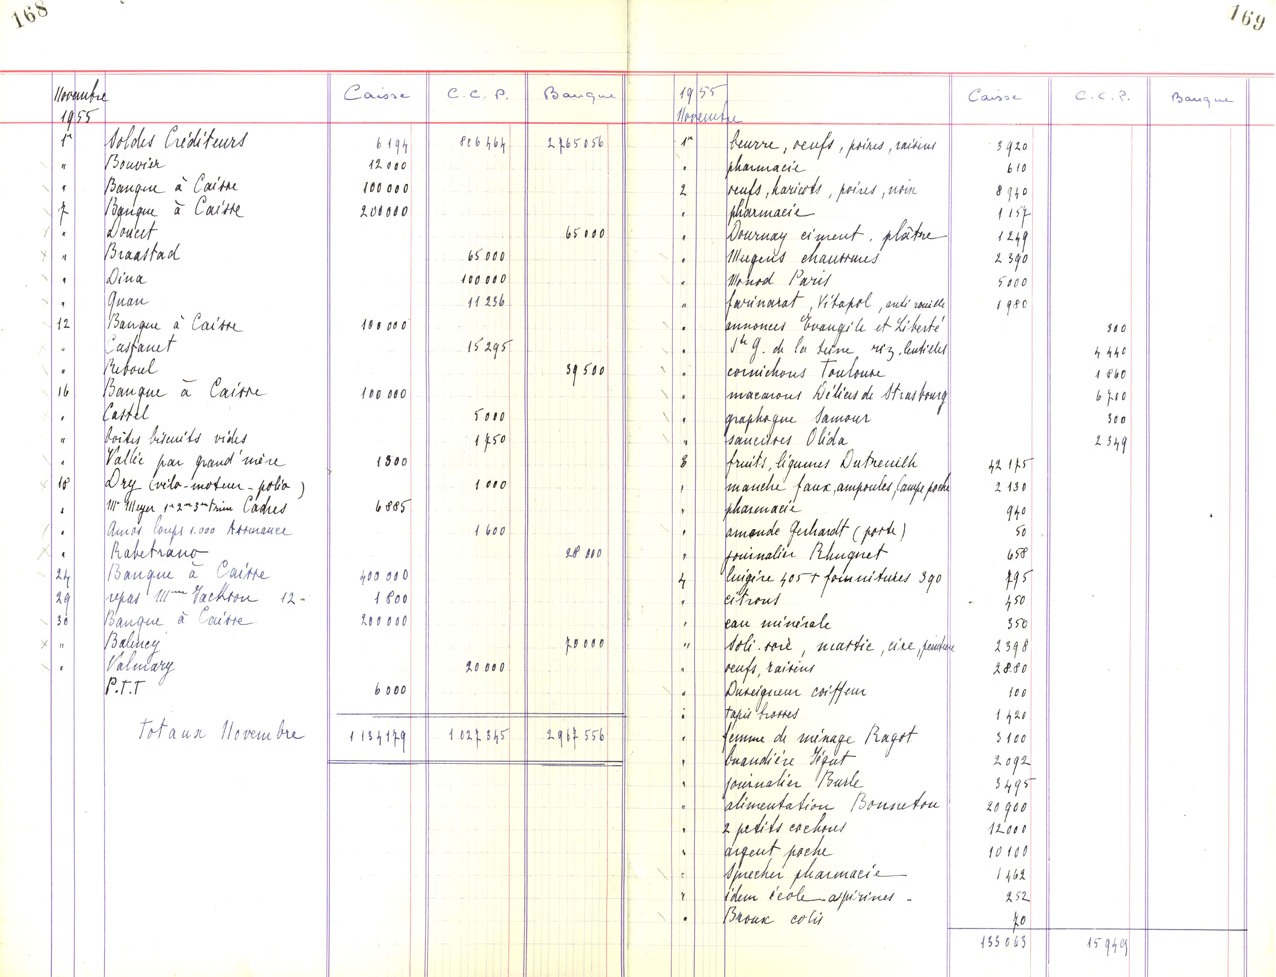 168
Novembre 1955 Caisse C.C.P. Banque
1er Soldes Créditeurs 6194 826464 2765056
" Bouvier 12000
" Banque à Caisse 100000
7 Banque à Caisse 200000
" Doucet 65000
" Braastad 65000
" Dina 100000
" 11236
12 Banque à Caisse 100000
" Castanet 15295
" Reboul 39500
16 Banque à Caisse 100000
" Castel 5000
" boites biscuits vides 1750
" Vallée par grand'mère 1800
18 Dry (vélo-moteur-polio) 1000
" Mr Meyer 1er 2me 3me Trim Cadres 6885
" Amos 1.000 Assurance 1600
" Rabetrano 28000
24 Banque à Caisse 400000
29 repas Mme Jackson 12- 1800
30 Banque à Caisse 200000
" Balency 70000
" Valmary 20000
P.T.T 6000
Totaux Novembre 1134179 1027345 2967556
169
1955 Novembre Caisse C.C.P. Banque
1er beurre, oeufs, poires, raisins 3920
" pharmacie 610
2 oeufs, haricots, poires, noix 8940
" pharmacie 1157
" Dournay ciment, plâtre 1249
" chaussures 2390
" Monod Paris 5000
" farinarat, Vitapol, anti rouille 1980
" annonces Evangile et Liberté 300
" Sté G. de la Seine riz, lentilles 4440
" cornichons Toulouse 1860
" macarons Délices de Strasbourg 6700
" Samour 300
" saucisses Olida 2349
3 fruits, légumes Dutreuilh 42175
" manche faux, ampoules, lampe poche 2130
" pharmacie 940
" amende Gerhardt (porte) 50
" journalier Rhugnet 658
4 lingère 405 + fournitures 390 795
" citrons 450
" eau minérale 350
" mastic, cire, peinture 2398
" oeufs, raisins 2880
" coiffeur 100
" tapis brosses 1420
" femme de ménage Ragot 3100
" buandière 2092
" journalier Burle 3495
" alimentation Bonneton 20900
" 2 petits cochons 12000
" argent poche 10100
" Sprecher pharmacie 1462
" idem école aspirines - 252
" Broux colis 70
133063 15949